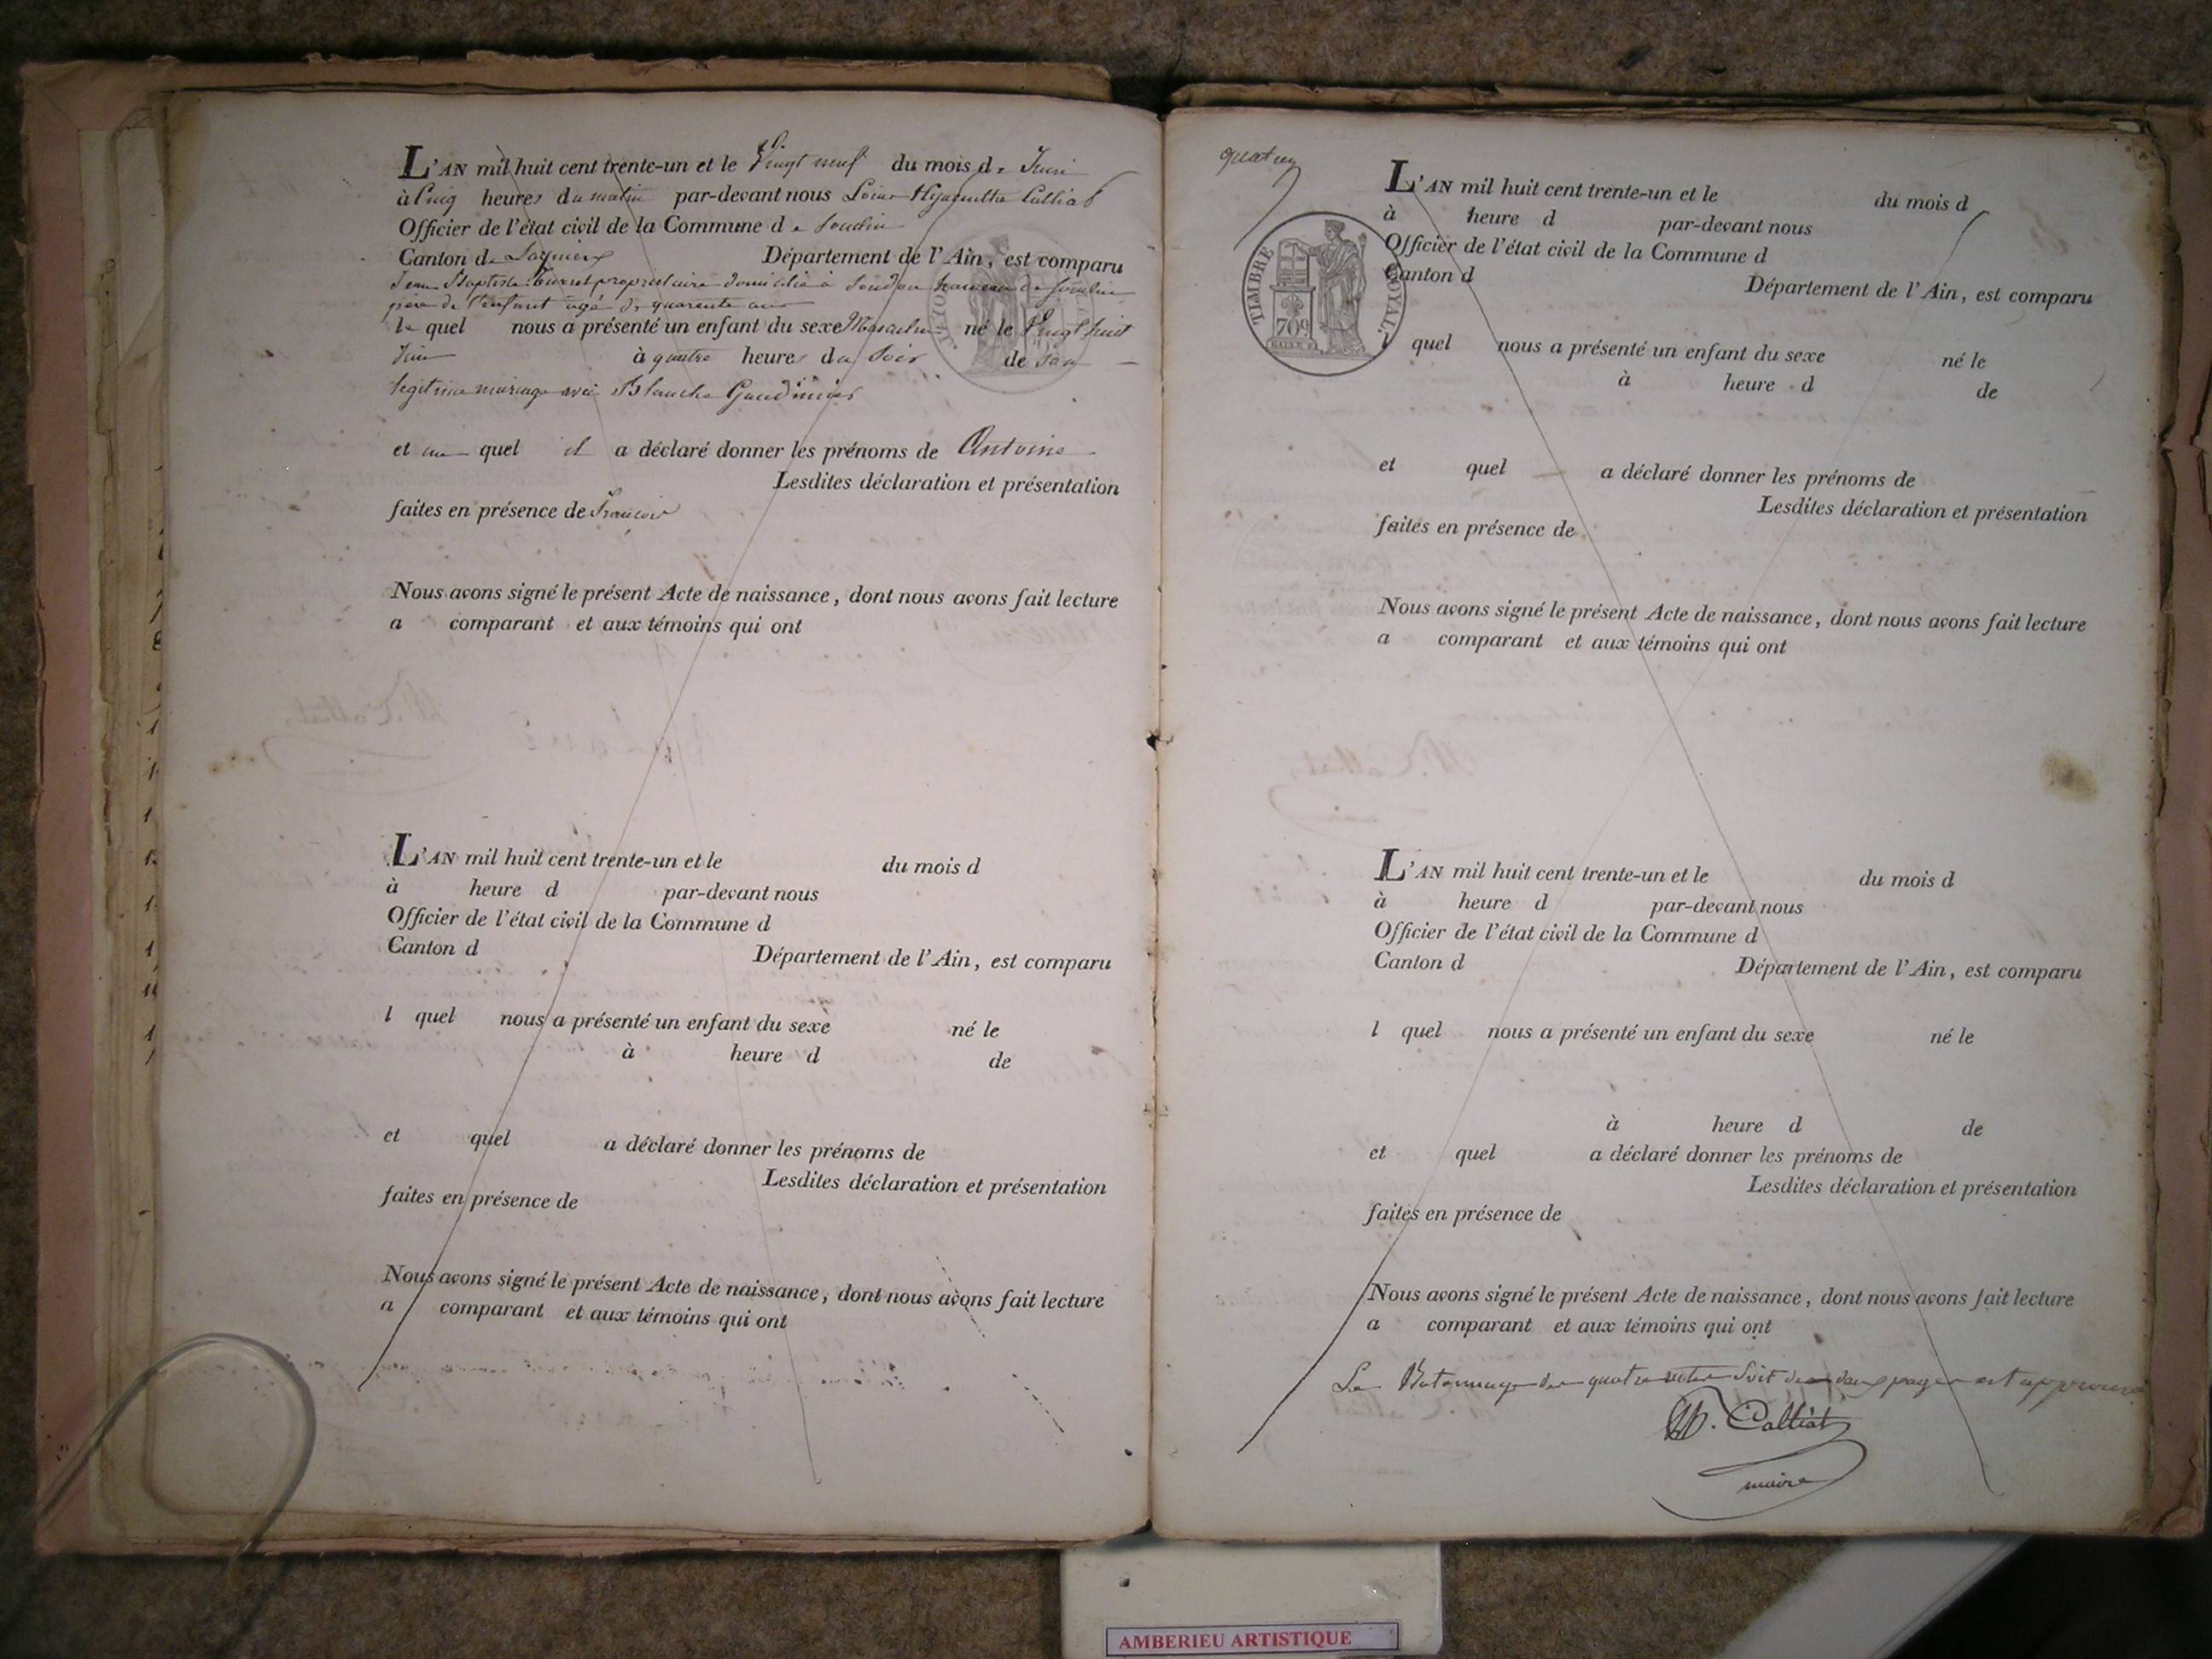 L'AN mil huit cent trente-un et le Vingt neuf du mois de Juin
à Cinq heures du matin par-devant nous Louis Hyacinthe Calliat
Officier de l'état civil de la Commune de Souclin
Canton de Lagnieu Département de l'Ain, est comparu
Jean Baptiste propriétaire domicilié à Soudon hameau de Souclin
père de l'enfant agé de quarante ans
le quel nous a présenté un enfant du sexe Masculin né le Vingt huit
Juin à quatre heures du Soir de son
legitime mariage avec Blanche
et au quel il a déclaré donner les prénoms de Antoine
Lesdites déclaration et présentation
faites en présence de Francois
Nous avons signé le présent Acte de naissance, dont nous avons fait lecture
a comparant et aux témoins qui ont
L'AN mil huit cent trente-un et le du mois d
à heure d par-devant nous
Officier de l'état civil de la Commune d
Canton d Département de l'Ain, est comparu
l quel nous a présenté un enfant du sexe né le
à heure d de
et quel a déclaré donner les prénoms de
Lesdites déclaration et présentation
faites en présence de
Nous avons signé le présent Acte de naissance, dont nous avons fait lecture
a comparant et aux témoins qui ont
TIMBRE ROYAL.
70c
L'AN mil huit cent trente-un et le du mois d
à heure d par-devant nous
Officier de l'état civil de la Commune d
Canton d Département de l'Ain, est comparu
l quel nous a présenté un enfant du sexe né le
à heure d de
et quel a déclaré donner les prénoms de
Lesdites déclaration et présentation
faites en présence de
Nous avons signé le présent Acte de naissance, dont nous avons fait lecture
a comparant et aux témoins qui ont
L'AN mil huit cent trente-un et le du mois d
à heure d par-devant nous
Officier de l'état civil de la Commune d
Canton d Département de l'Ain, est comparu
l quel nous a présenté un enfant du sexe né le
à heure d de
et quel a déclaré donner les prénoms de
Lesdites déclaration et présentation
faites en présence de
Nous avons signé le présent Acte de naissance, dont nous avons fait lecture
a comparant et aux témoins qui ont
Le Batonnage des quatre actes Soit des deux pages est approuvé
Calliat
maire
AMBERIEU ARTISTIQUE